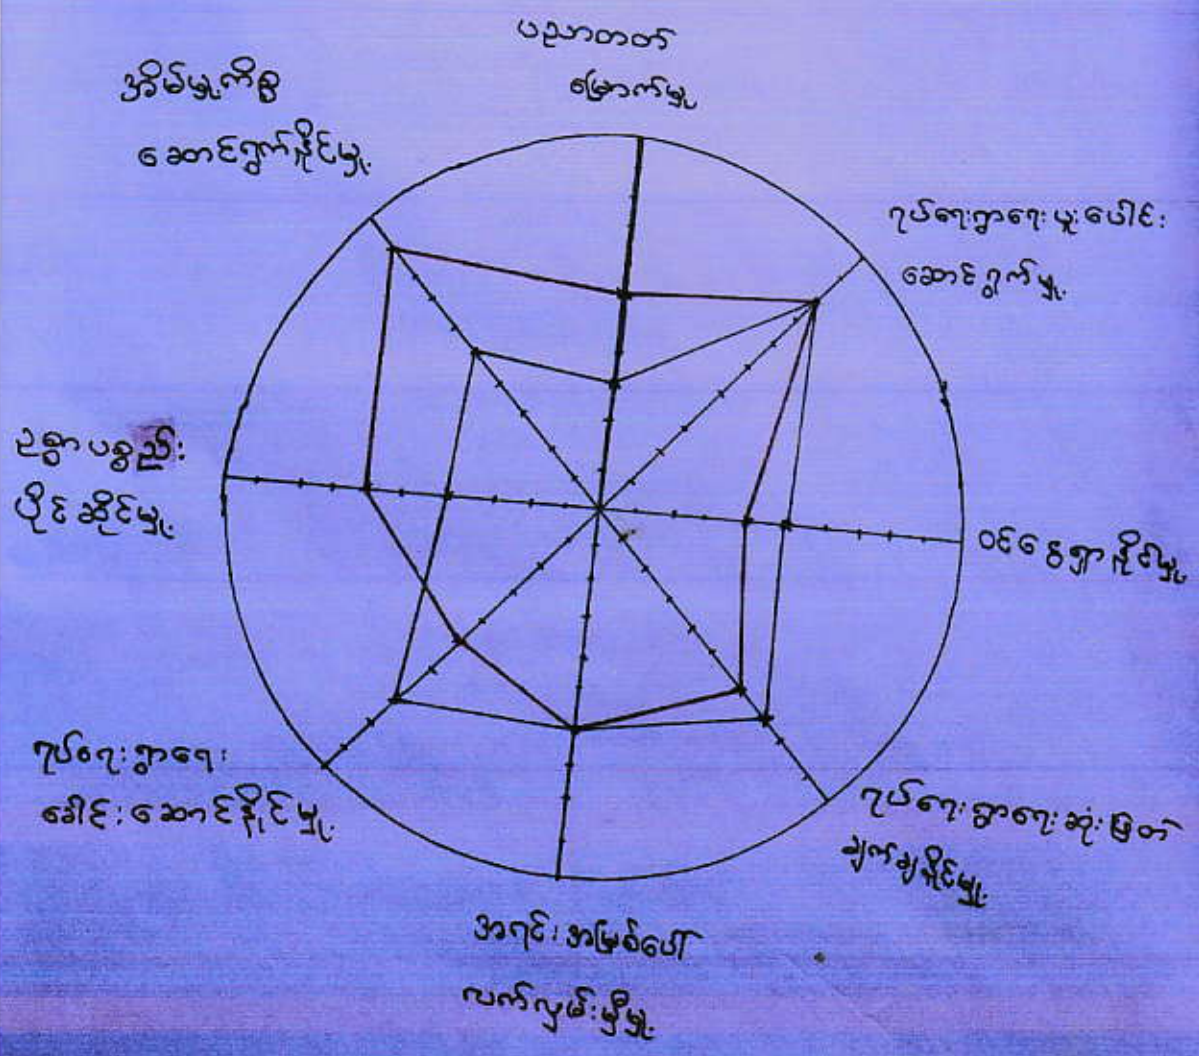 ပညာတတ်
မြောက်မှု
ရပ်ရေးရွာရေးပူးပေါင်း
ဆောင်ရွက်မှု
ဝင်ငွေရှာနိုင်မှု
ရပ်ရေးရွာရေးဆုံးဖြတ်
ချက်ချနိုင်မှု
အရင်းအမြစ်ပေါ်
လက်လှမ်းမှီမှု
ရပ်ရေးရွာရေး
ခေါင်းဆောင်နိုင်မှု
ဥစ္စာပစ္စည်း
ပိုင်ဆိုင်မှု
အိမ်မှုကိစ္စ
ဆောင်ရွက်နိုင်မှု